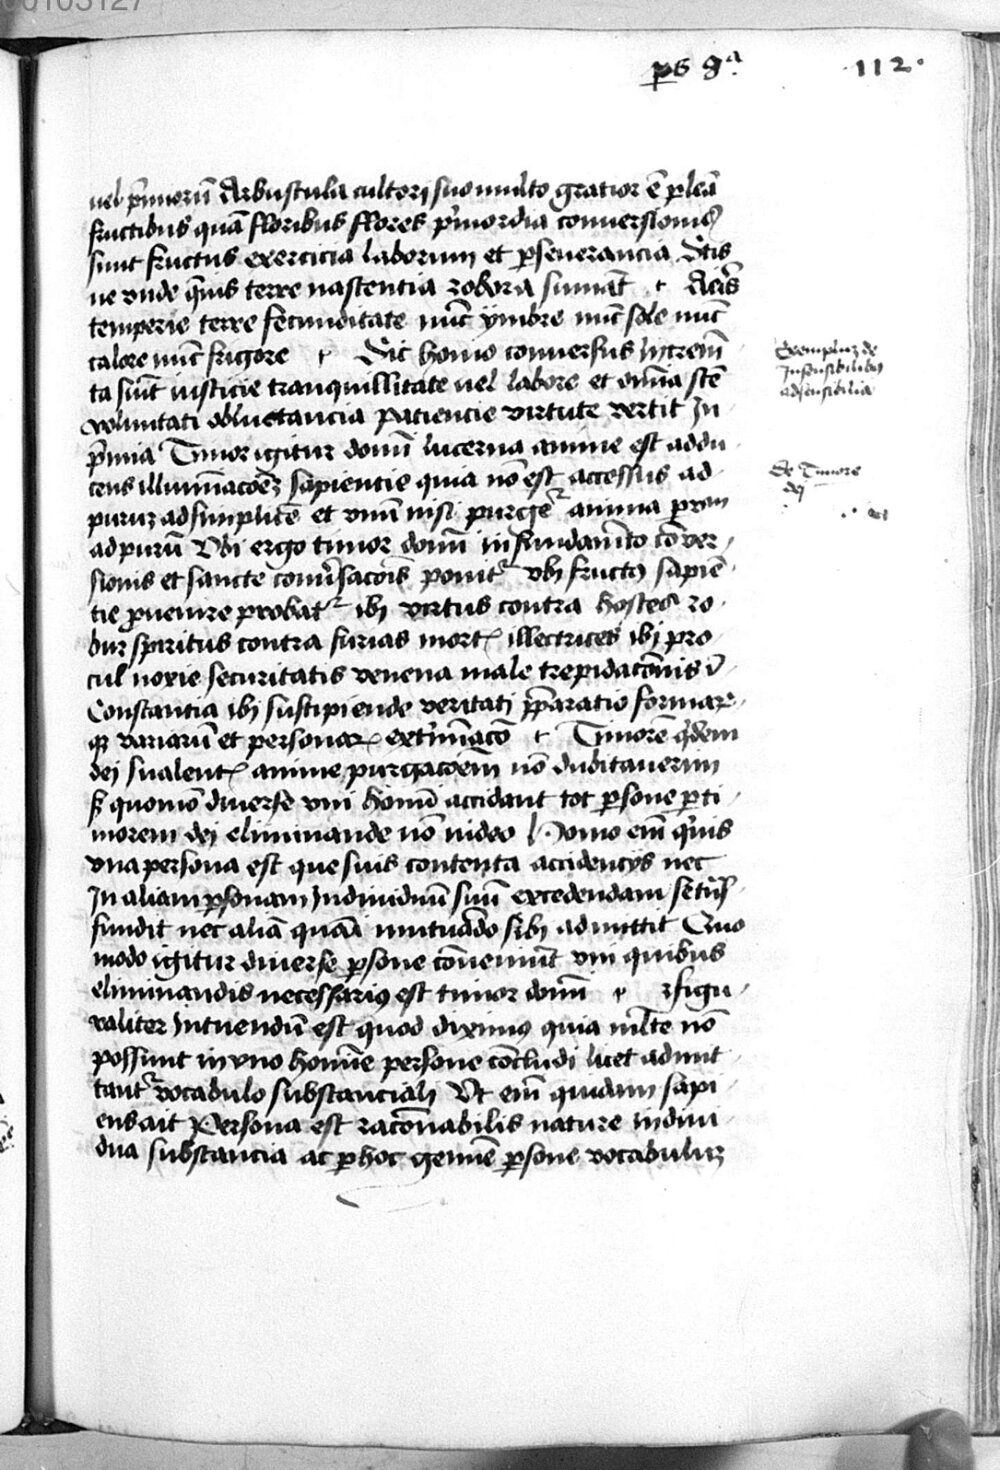 00103127
ps 9ª
112
uel pͥmorū Arbustula cultori suo multo gratior ē plēa
fructibus quā floribus flores pͥmordia conuersionis
sunt fructus exercicia laborum et pseuerancia
ne unde terre nascentia robora sumāt Aeris
temperie terre fecunditate nūc ymbre nūc sole nūc
calore nūc frigore Sic homo conuersus Increm̄
ta sūt iusticie tranquillitate uel labore et om̄ia
voluntati obluctancia paciencie virtute vertit In
pͥmia Timor igitur domī lucerna anime est addu
cens illumīacōeȝ sapientie quia nō est accessus ad
puruȝ ad simplicē et vnū nisi purgeͬ anima
ad purū Vbi ergo timor domī in fundamēto cōuer
sionis et sancte ponitͬ vbi fructꝰ sapiē
tie puenire probatͬ ibi virtus contra hostes ro
bur spiritus contra furias illectrices ibi pro
cul noxie securitatis venena male trepidacōnis
Constancia ibi suscipiende veritati pparatio formaꝝ
qꝫ variarū et personaꝝ Timorē qͥdem
dei anime purgacōem nō dubitauerim
sꝫ quomō diuerse vni homī accidant tot psone p ti
morem dei eliminande nō uideo Homo em̄ qͥuis
vna persona est que suis contenta accidencijs nec
In aliam psonam Indiuiduū suū excedendam
fundit nec aliā quāi mutuādo sibi admittit Quo
modo igitur diuerse psone cōueniūt vni quibus
eliminandis necessariꝰ est timor domī figu
raliter Intuendū est quod diximꝰ quia mlte nō
possunt in vno homīe persone cōcludi licet admit
tantͬ vocabulo substanciali Vt em̄ quidam sapi
ens ait Persona est racōnabilis nature indiui
dua substancia ac p hoc psone vocabuluȝ
Exempluȝ de
Insensibilibꝰ
ad sensibilia
de Timore
dei